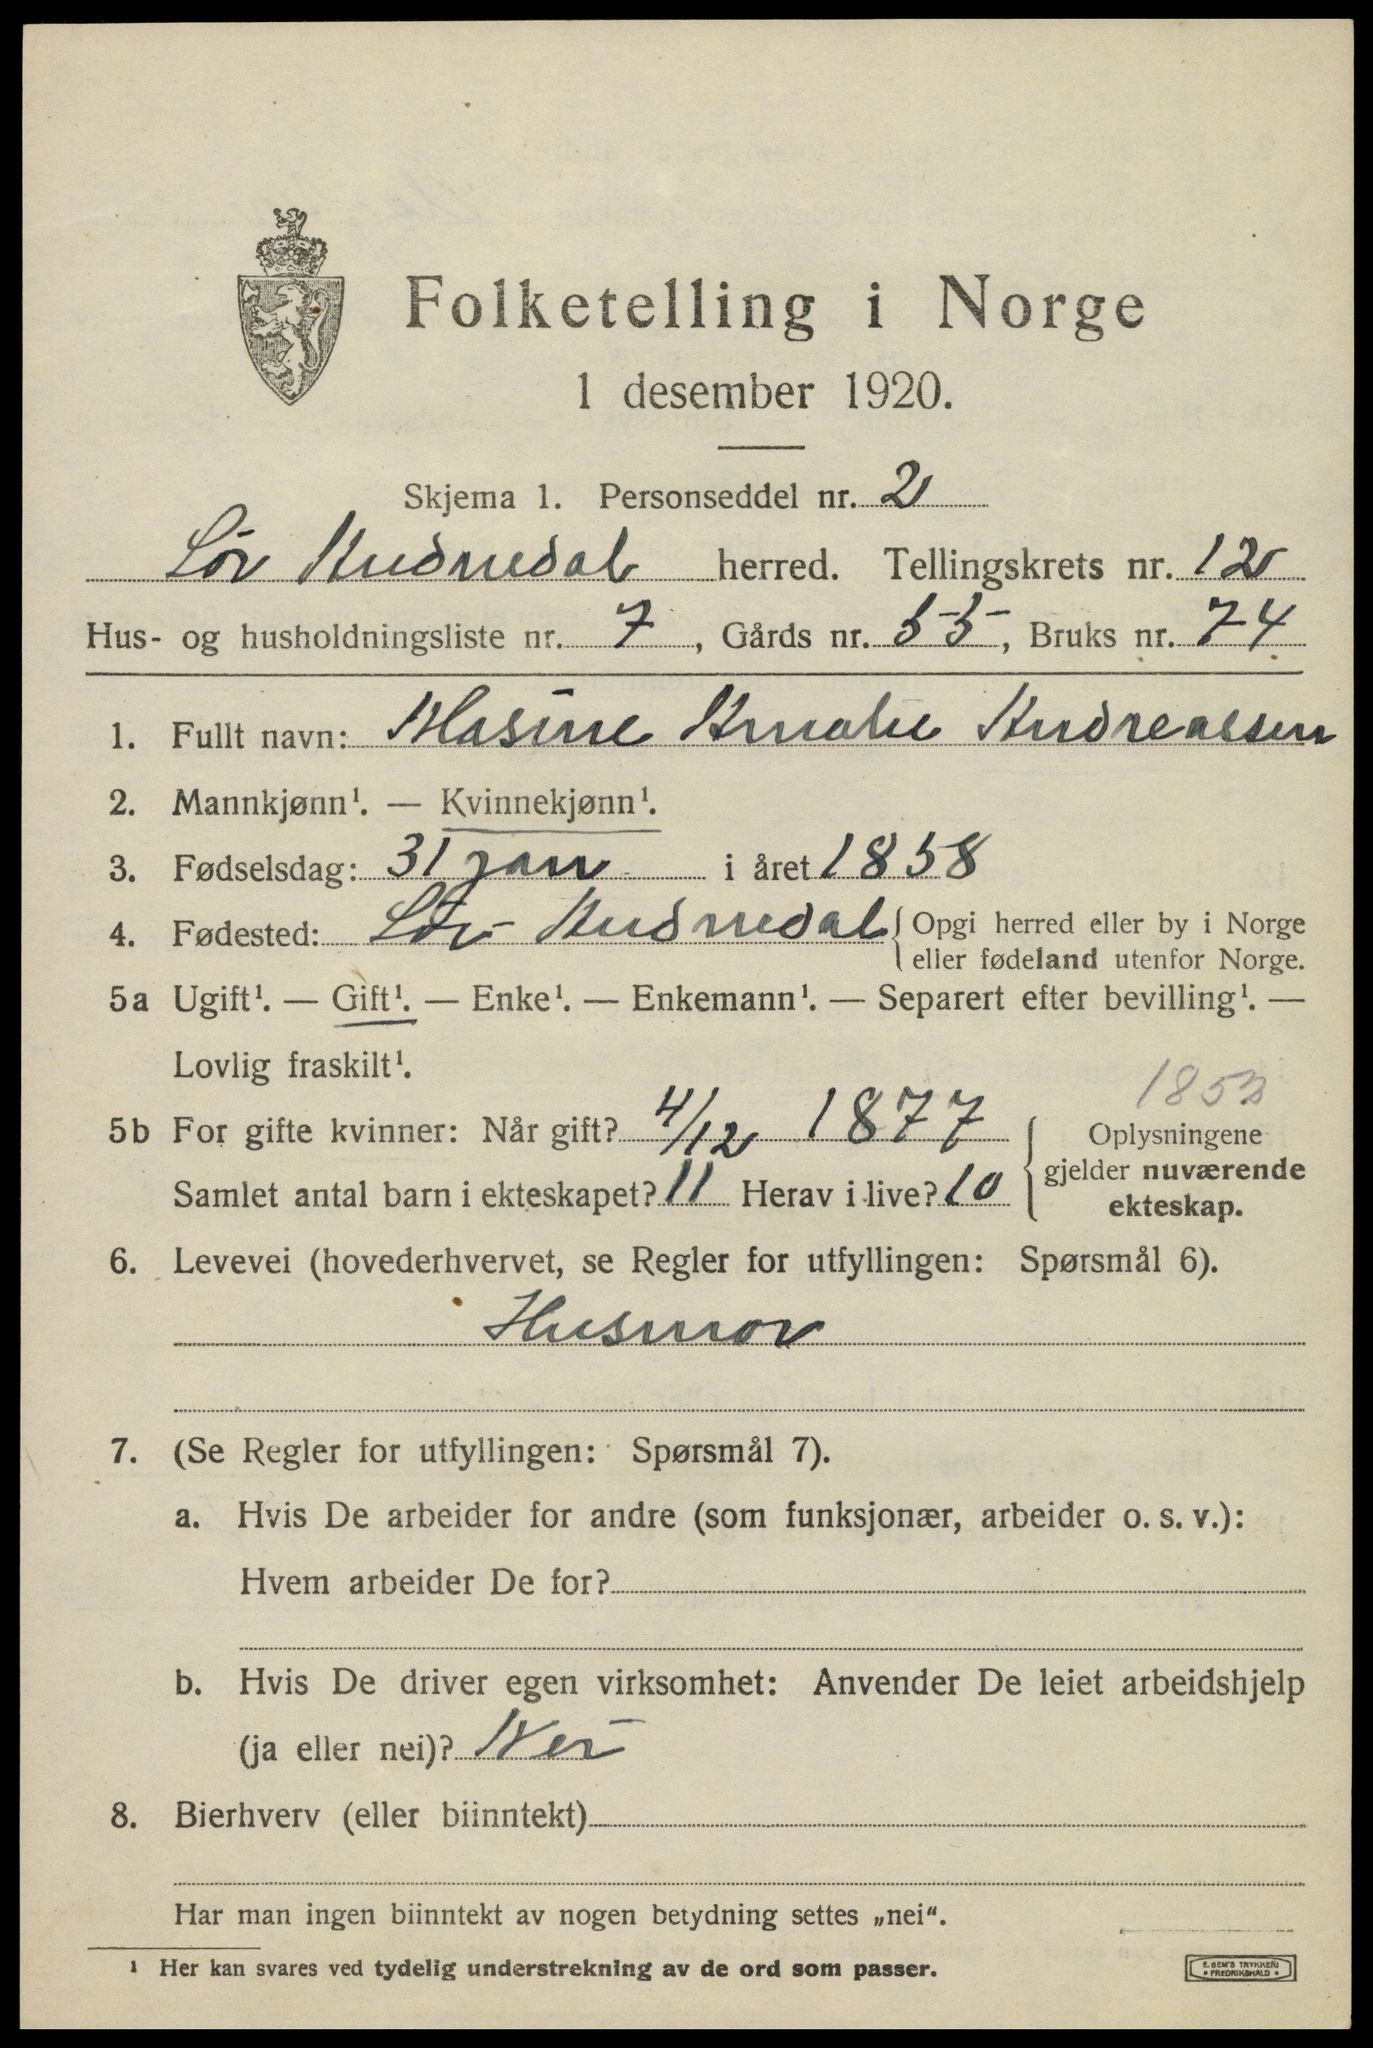 Folketelling i Norge
1 desember 1920.
Skjema 1. Personseddel nr. 2
Sør Audnedal herred. Tellingskrets nr. 12
Hus- og husholdningsliste nr. 7, Gårds nr. 55, Bruks nr. 74
1. Fullt navn: Masine Amalie Andreassen
2. Mannkjønn¹. — Kvinnekjønn¹.
3. Fødselsdag: 31 jan i året 1858
4. Fødested: Sør Audnedal { Opgi herred eller by i Norge
eller fødeland utenfor Norge.
5a Ugift¹. — Gift¹. — Enke¹. — Enkemann¹. — Separert efter bevilling¹. —
Lovlig fraskilt¹.
1853
5b For gifte kvinner: Når gift? 4/12 1877
Samlet antal barn i ekteskapet? 11 Herav i live? 10
Oplysningene
gjelder nuværende
ekteskap.
6. Levevei (hovederhvervet, se Regler for utfyllingen: Spørsmål 6).
Husmor
7. (Se Regler for utfyllingen: Spørsmål 7).
a. Hvis De arbeider for andre (som funksjonær, arbeider o. s. v.):
Hvem arbeider De for?
b. Hvis De driver egen virksomhet: Anvender De leiet arbeidshjelp
(ja eller nei)? Nei
8. Bierhverv (eller biinntekt)
Har man ingen biinntekt av nogen betydning settes „nei“.
¹ Her kan svares ved tydelig understrekning av de ord som passer.
E. SEM'S TRYKKERI
• FREDRIKSHALD •